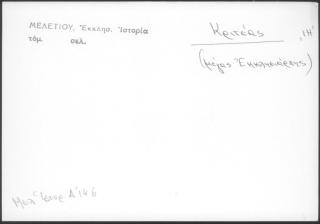 ΜΕΛΕΤΙΟΥ, Ἐκκλησ. Ἱστορία
τόμ. σελ.
Κριτίας ιη'
(μέγας Ἐκκλησιάρχης)
Α 146